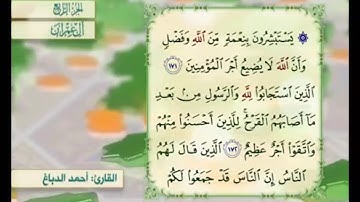 الجزء الرابع
آل عمران
۞ يَسْتَبْشِرُونَ بِنِعْمَةٍ مِّنَ اللَّهِ وَفَضْلٍ
وَأَنَّ اللَّهَ لَا يُضِيعُ أَجْرَ الْمُؤْمِنِينَ ١٧١
الَّذِينَ اسْتَجَابُوا لِلَّهِ وَالرَّسُولِ مِن بَعْدِ
مَا أَصَابَهُمُ الْقَرْحُ لِلَّذِينَ أَحْسَنُوا مِنْهُمْ
وَاتَّقَوْا أَجْرٌ عَظِيمٌ ١٧٢ الَّذِينَ قَالَ لَهُمُ
النَّاسُ إِنَّ النَّاسَ قَدْ جَمَعُوا لَكُمْ
القارئ: أحمد الدباغ